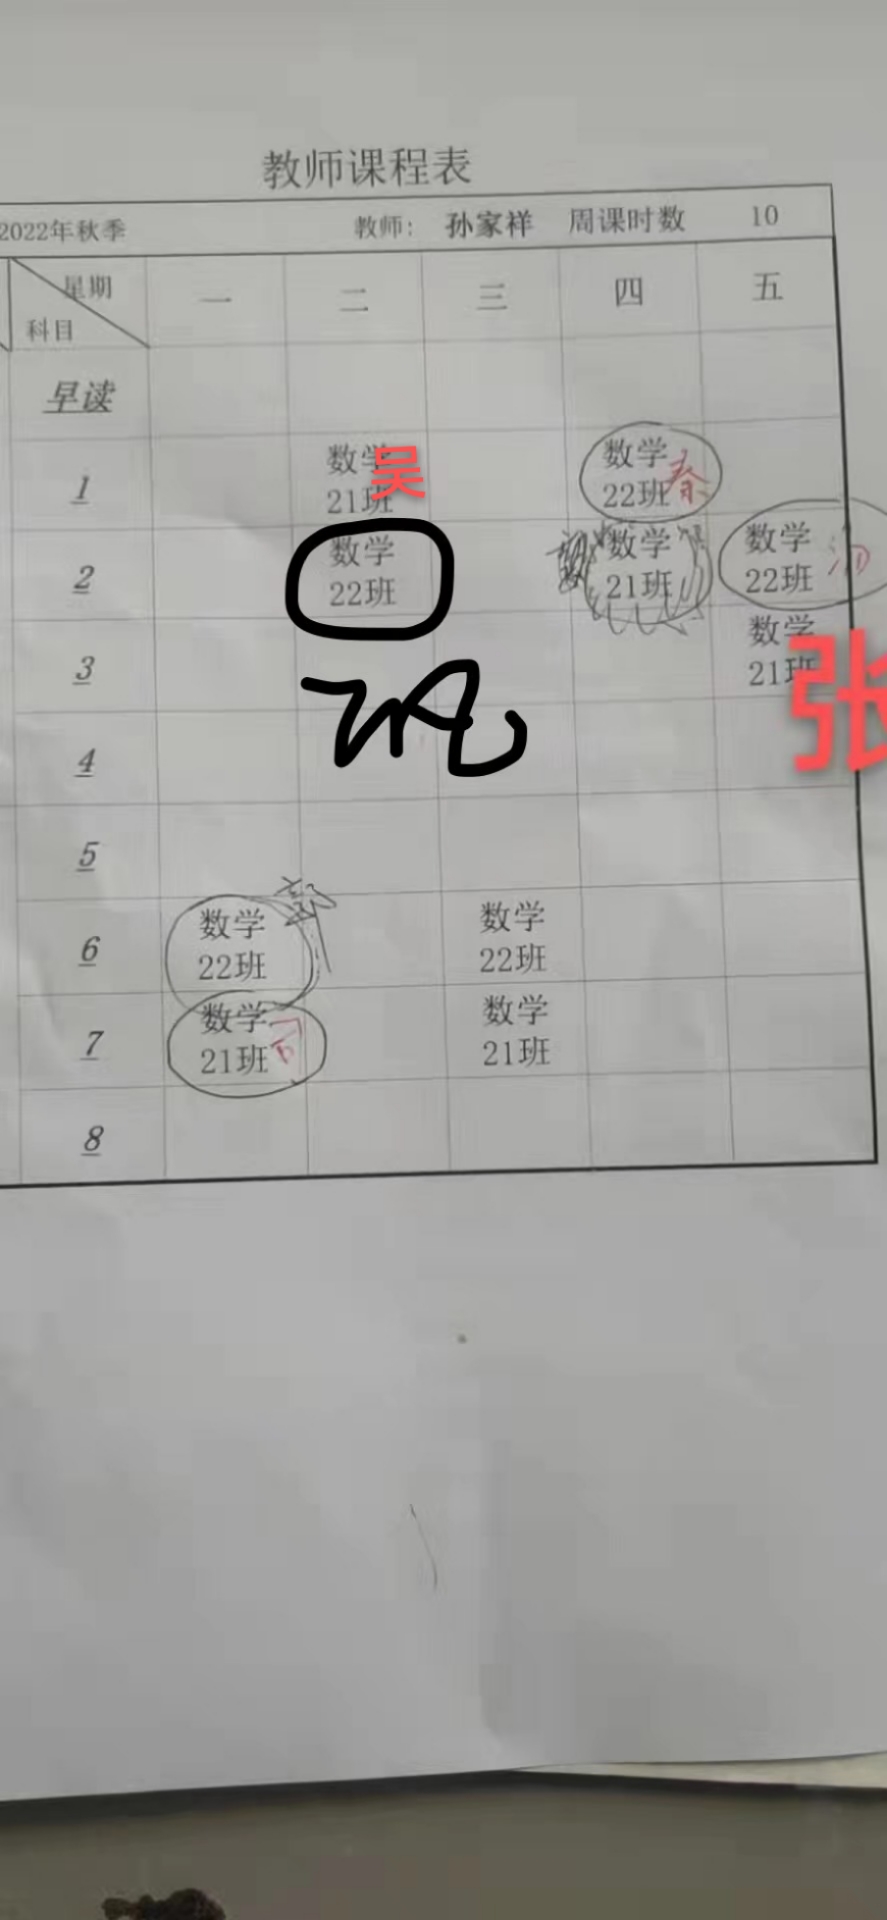 教师课程表
2022年秋季 教师： 孙家祥 周课时数 10
星期 一 二 三 四 五
科目
早读
1 数学 吴 数学 秦
21班 22班
2 数学 数学 数学
22班 21班 22班
3 数学
21班 张
4
5
6 数学 数学
22班 22班
7 数学 数学
21班 21班
8